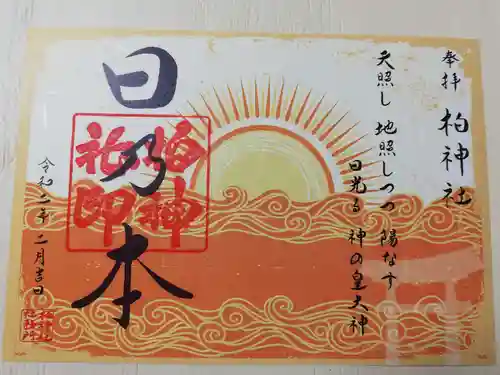 奉拝 柏神社
天照し 地照しつつ 陽なす
日光る 神の皇大神
日乃本
柏神
社印
令和二年 二月吉日